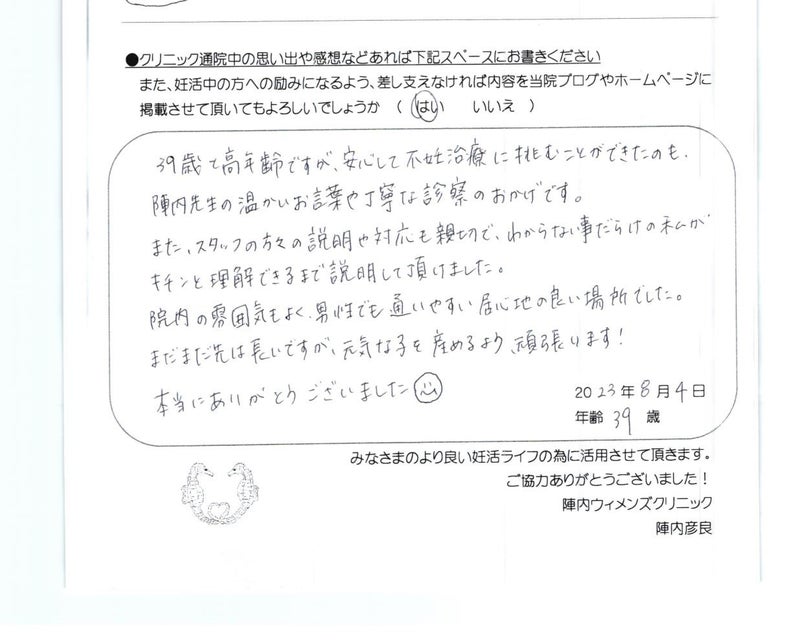 ●クリニック通院中の思い出や感想などあれば下記スペースにお書きください
また、妊活中の方への励みになるよう、差し支えなければ内容を当院ブログやホームページに
掲載させて頂いてもよろしいでしょうか （ はい いいえ ）
39歳で高年齢ですが、安心して不妊治療に挑むことができたのも、
陣内先生の温かいお言葉や丁寧な診察のおかげです。
また、スタッフの方々の説明や対応も親切で、わからない事だらけの私が
キチンと理解できるまで説明して頂けました。
院内の雰囲気もよく、男性でも通いやすい居心地の良い場所でした。
まだまだ先は長いですが、元気な子を産めるよう、頑張ります！
本当にありがとうございました
2023年8月4日
年齢 39 歳
みなさまのより良い妊活ライフの為に活用させて頂きます。
ご協力ありがとうございました！
陣内ウィメンズクリニック
陣内彦良